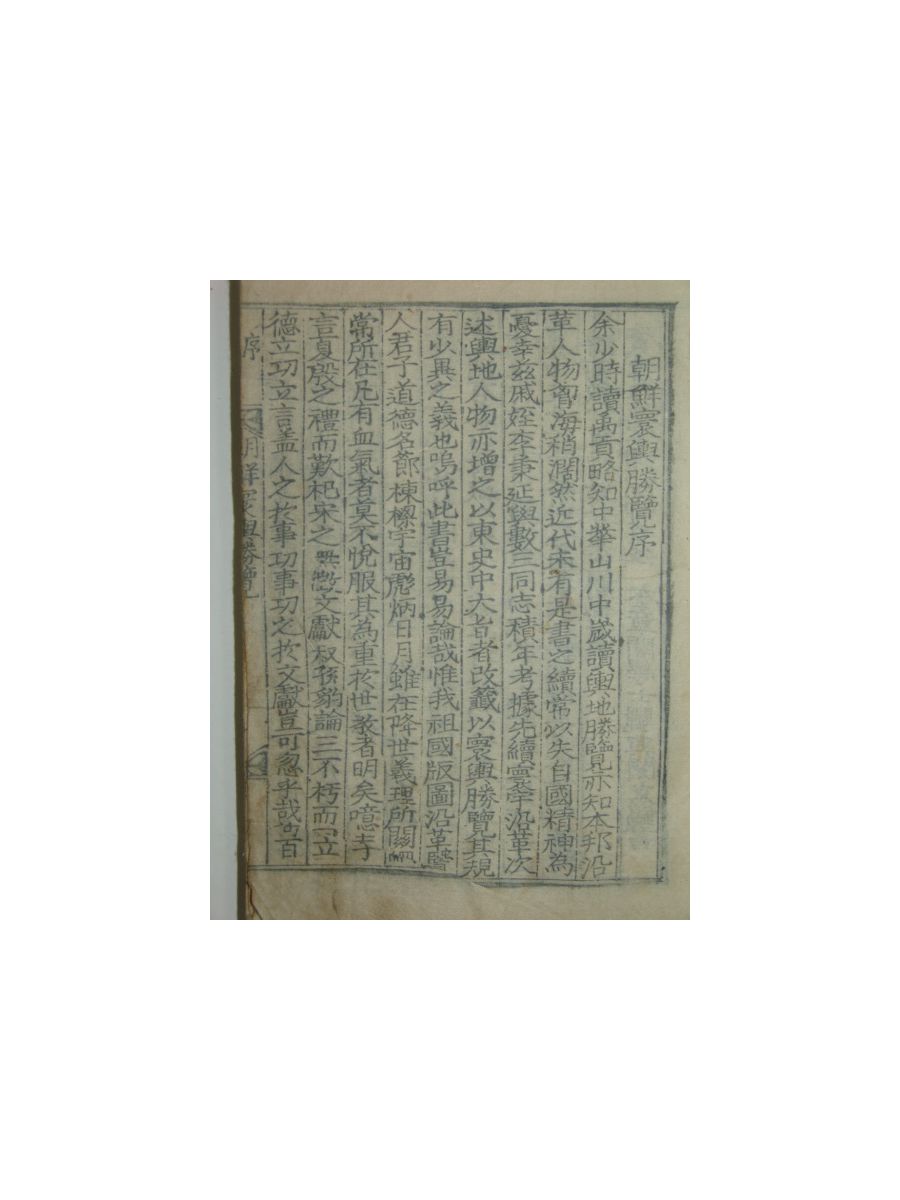 朝鮮寰輿勝覽序
余少時讀禹貢略知中華山川中歲讀輿地勝覽亦知本邦沿
革人物胷海稍濶然近代未有是書之續常以失自國精神為
憂幸玆戚姪李秉延與數三同志積年考據先續雲擧沿革次
述輿地人物亦增之以東史中大旨者改籤以寰輿勝覽其規
有少異之義也嗚呼此書豈易易論哉惟我祖國版圖沿革賢
人君子道德名節棟樑宇宙彪炳日月雖在降世義理所關綱
常所在凡有血氣者莫不悅服其為重於世敎者明矣噫孝
言夏殷之禮而歎杞宋之無文獻叔孫豹論三不朽而立
德立功立言盖人之於事功事功之於文獻豈可忽乎哉百
序
朝鮮寰輿勝覽